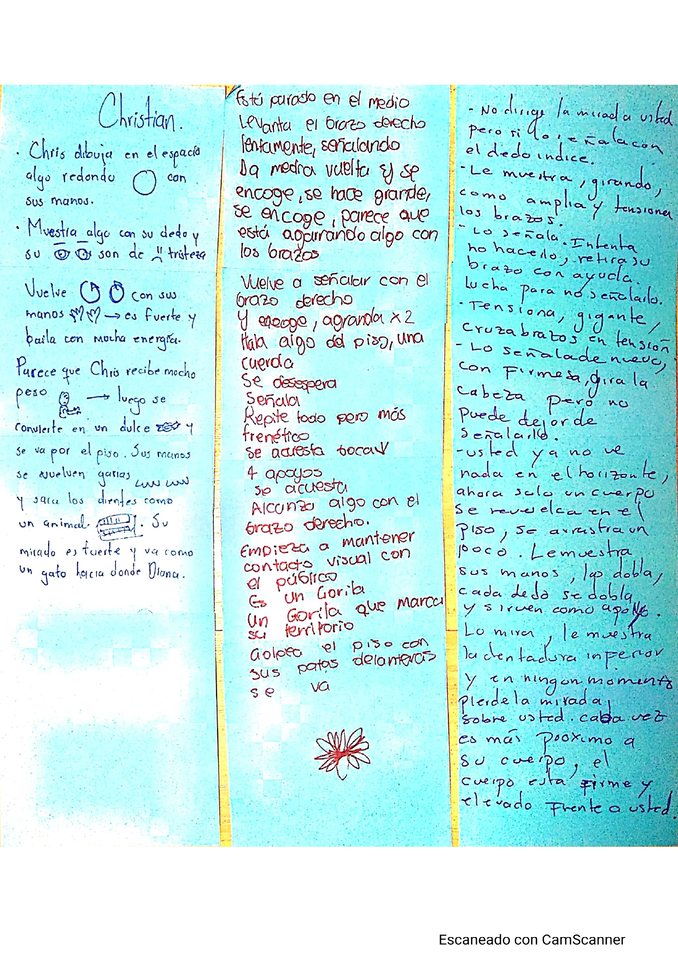 Christian.
• Chris dibuja en el espacio
algo redondo con
sus manos.
• Muestra algo con su dedo y
su son de tristeza
Vuelve con sus
manos → es fuerte y
baila con mucha energía.
Parece que Chris recibe mucho
peso → luego se
convierte en un dulce y
se va por el piso. Sus manos
se vuelven garras
y saca los dientes como
un animal. Su
mirada es fuerte y va como
un gato hacia donde Diana.
Está parado en el medio
Levanta el brazo derecho
lentamente, señalando
Da media vuelta y se
encoge, se hace grande,
se encoge, parece que
está agarrando algo con
los brazos
Vuelve a señalar con el
brazo derecho
Y encoge, agranda x2
Hala algo del piso, una
cuerda
Se desespera
Señala
Repite todo pero más
frenético
Se acuesta bocaV
4 apoyos
Se acuesta
Alcanza algo con el
brazo derecho.
Empieza a mantener
contacto visual con
el público
Es un Gorila
Un Gorila que marca
su territorio
Golpea el piso con
sus patas delanteras
se va
- No dirige la mirada a usted
pero si lo señala con
el dedo indice.
- Le muestra, girando,
como amplia y tensiona
los brazos.
- Lo señala. Intenta
no hacerlo, retira su
brazo con ayuda.
lucha para no señalarlo.
- Tensiona, gigante,
cruza brazos en tensión
- Lo señala de nuevo,
con firmesa, gira la
cabeza pero no
puede dejar de
señalarlo.
- usted ya no ve
nada en el horizonte,
ahora solo un cuerpo
se revuelca en el
piso, se arrastra un
poco. Le muestra
sus manos, las dobla,
cada dedo se dobla
y sirven como apoyo.
Lo mira, le muestra
la dentadura inferior
y en ningun momento
pierde la mirada
sobre usted. cada vez
es más próximo a
su cuerpo, el
cuerpo esta firme y
elevado frente a usted.
Escaneado con CamScanner